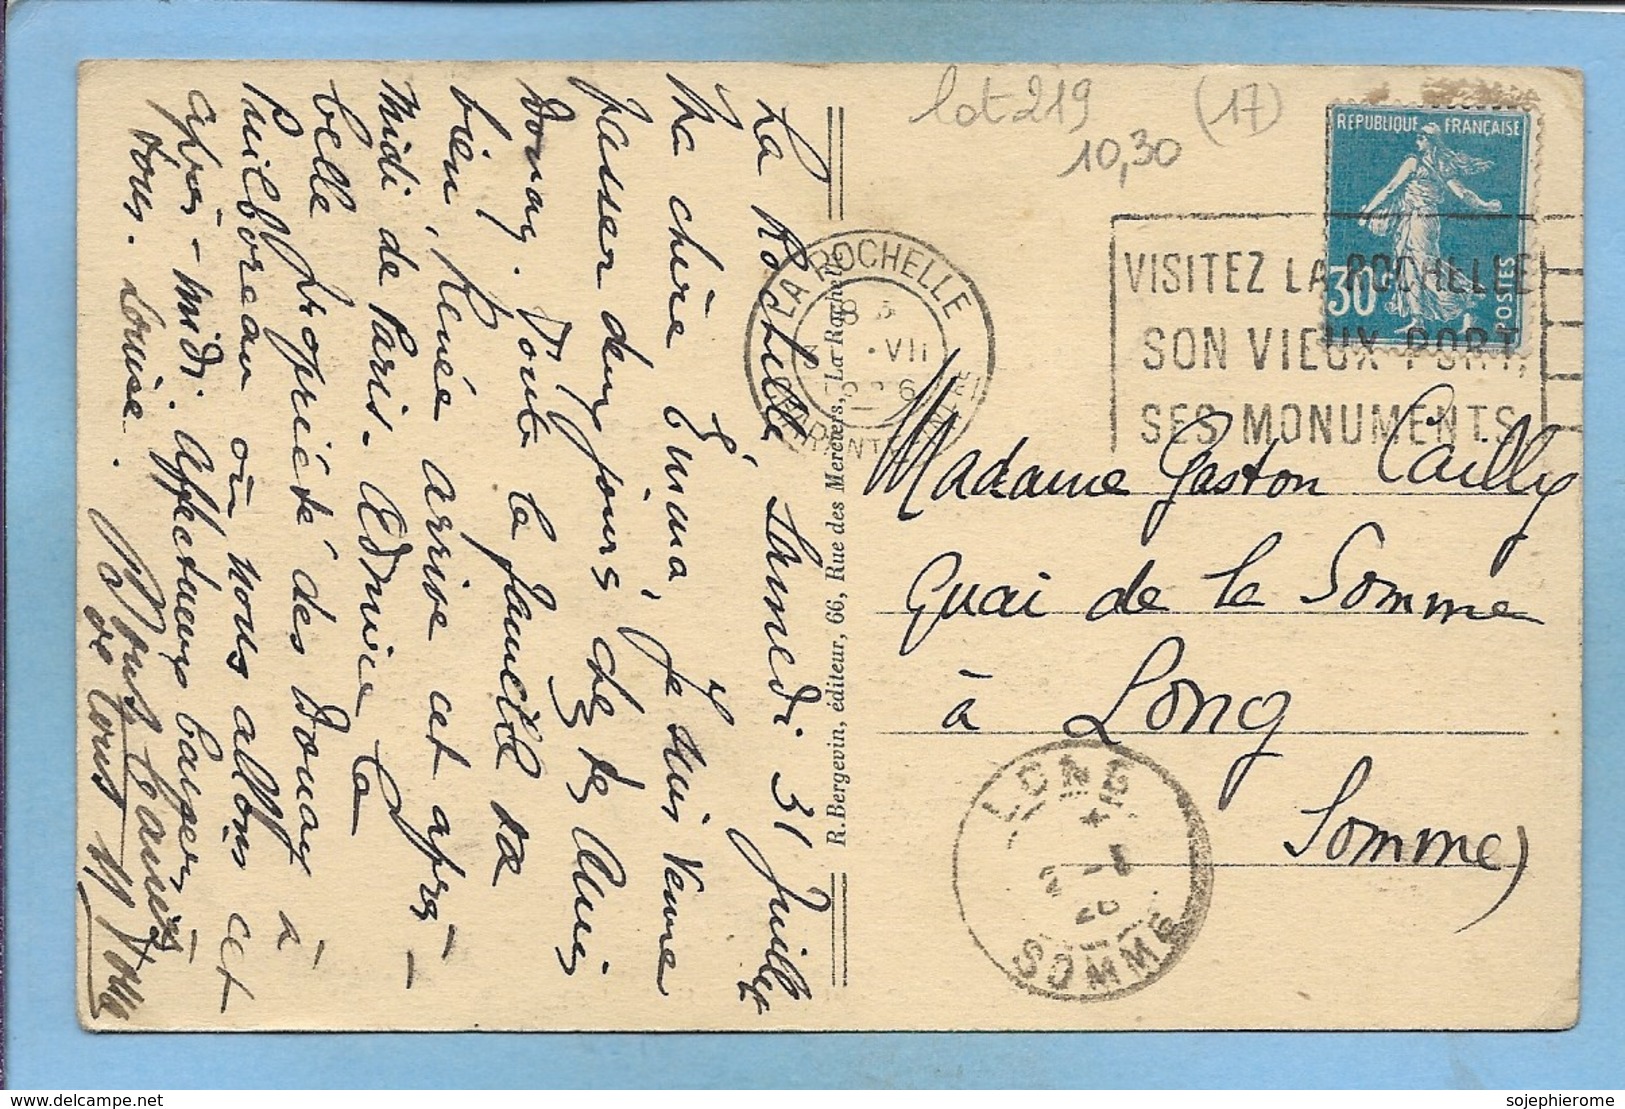 La Rochelle, Samedi 31 Juillet
Ma chère Emma, Je suis venue
passer deux jours chez les amis
Donay. Toute la famille va
bien, Renée arrive cet après-
midi de Paris. Edmée la
belle propriété des Donay à
Puilboreau où nous allons cet
après-midi. Affectueux baisers à
tous. Louise.
de tous
lot 219
(17)
10,30
REPUBLIQUE FRANÇAISE
30c
POSTES
LA ROCHELLE
VII
VISITEZ LA ROCHELLE
SON VIEUX PORT,
SES MONUMENTS
R. Bergevin, éditeur, 66, Rue des Merciers, La Rochelle
Madame Gaston Cailly
Quai de la Somme
à Long
Somme)
LONG
2 - 8
26
SOMME
sojephierome